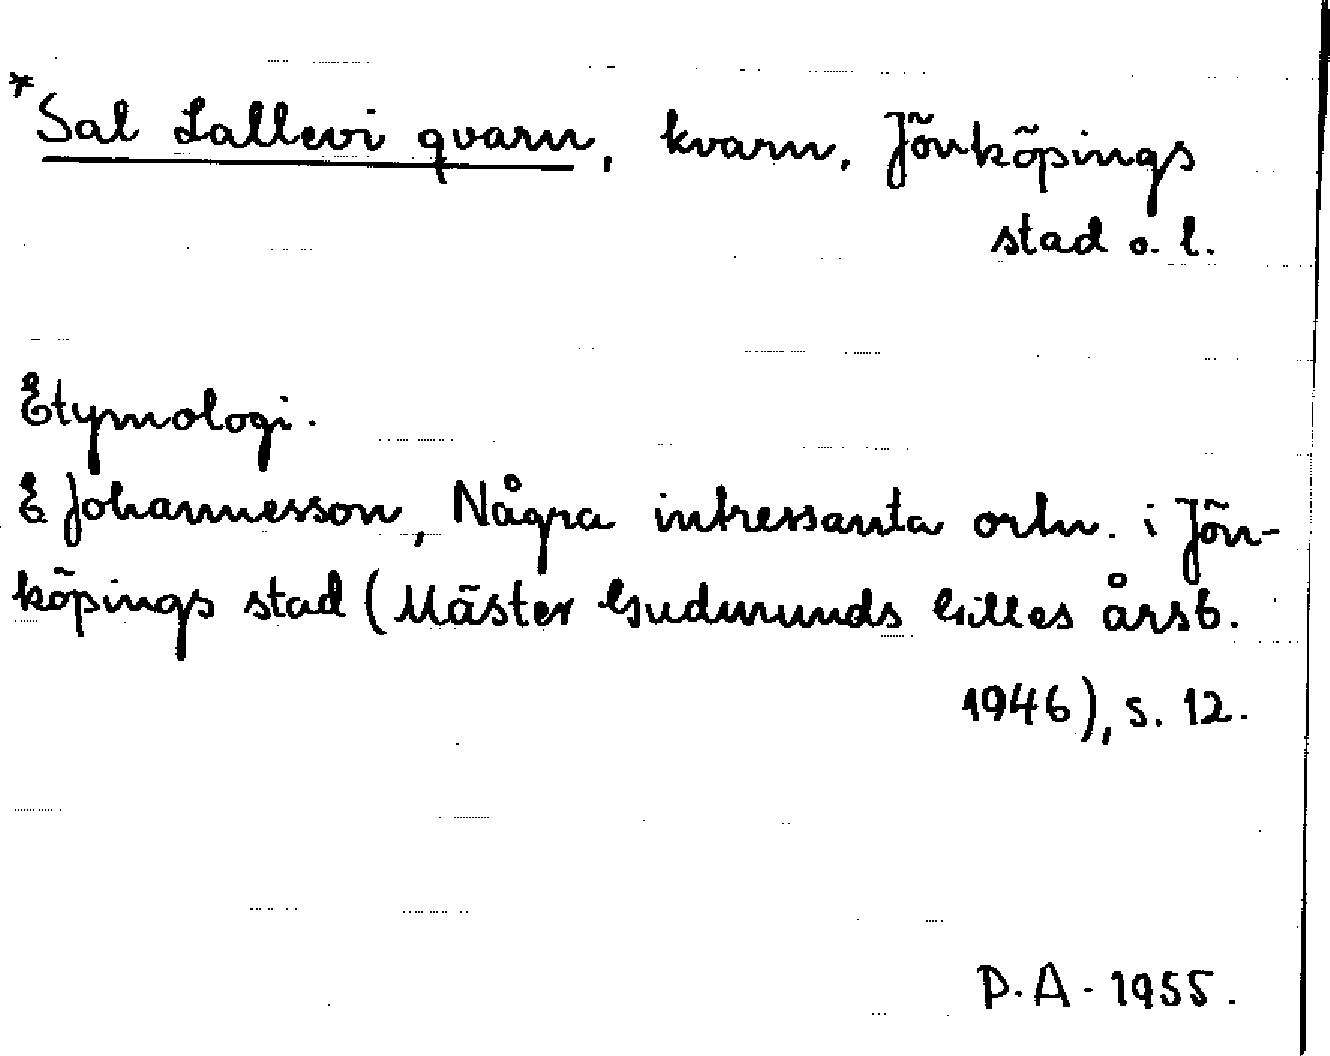 *Sal Lallevi qvarn, kvarn, Jönköpings
stad o. l.
Etymologi.
E Johannesson, Några intressanta ortn. i Jön-
köpings stad (Mäster Gudmunds Gilles årsb.
1946), s. 12.
P. A. 1955.